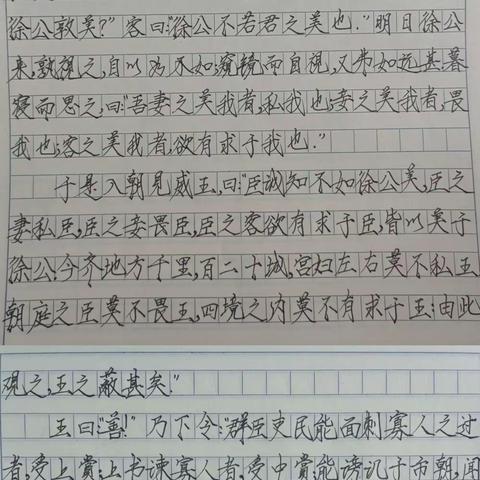 徐公孰美?"客曰:"徐公不若君之美也."明日徐公
来,孰视之,自以为不如;窥镜而自视,又弗如远甚.暮
寝而思之,曰:"吾妻之美我者,私我也;妾之美我者,畏
我也;客之美我者,欲有求于我也."
于是入朝见威王,曰:"臣诚知不如徐公美,臣之
妻私臣,臣之妾畏臣,臣之客欲有求于臣,皆以美于
徐公.今齐地方千里,百二十城,宫妇左右莫不私王
朝庭之臣莫不畏王,四境之内莫不有求于王:由此
观之,王之蔽甚矣."
王曰:"善!"乃下令:"群臣吏民能面刺寡人之过
者,受上赏;上书谏寡人者,受中赏;能谤讥于市朝,闻